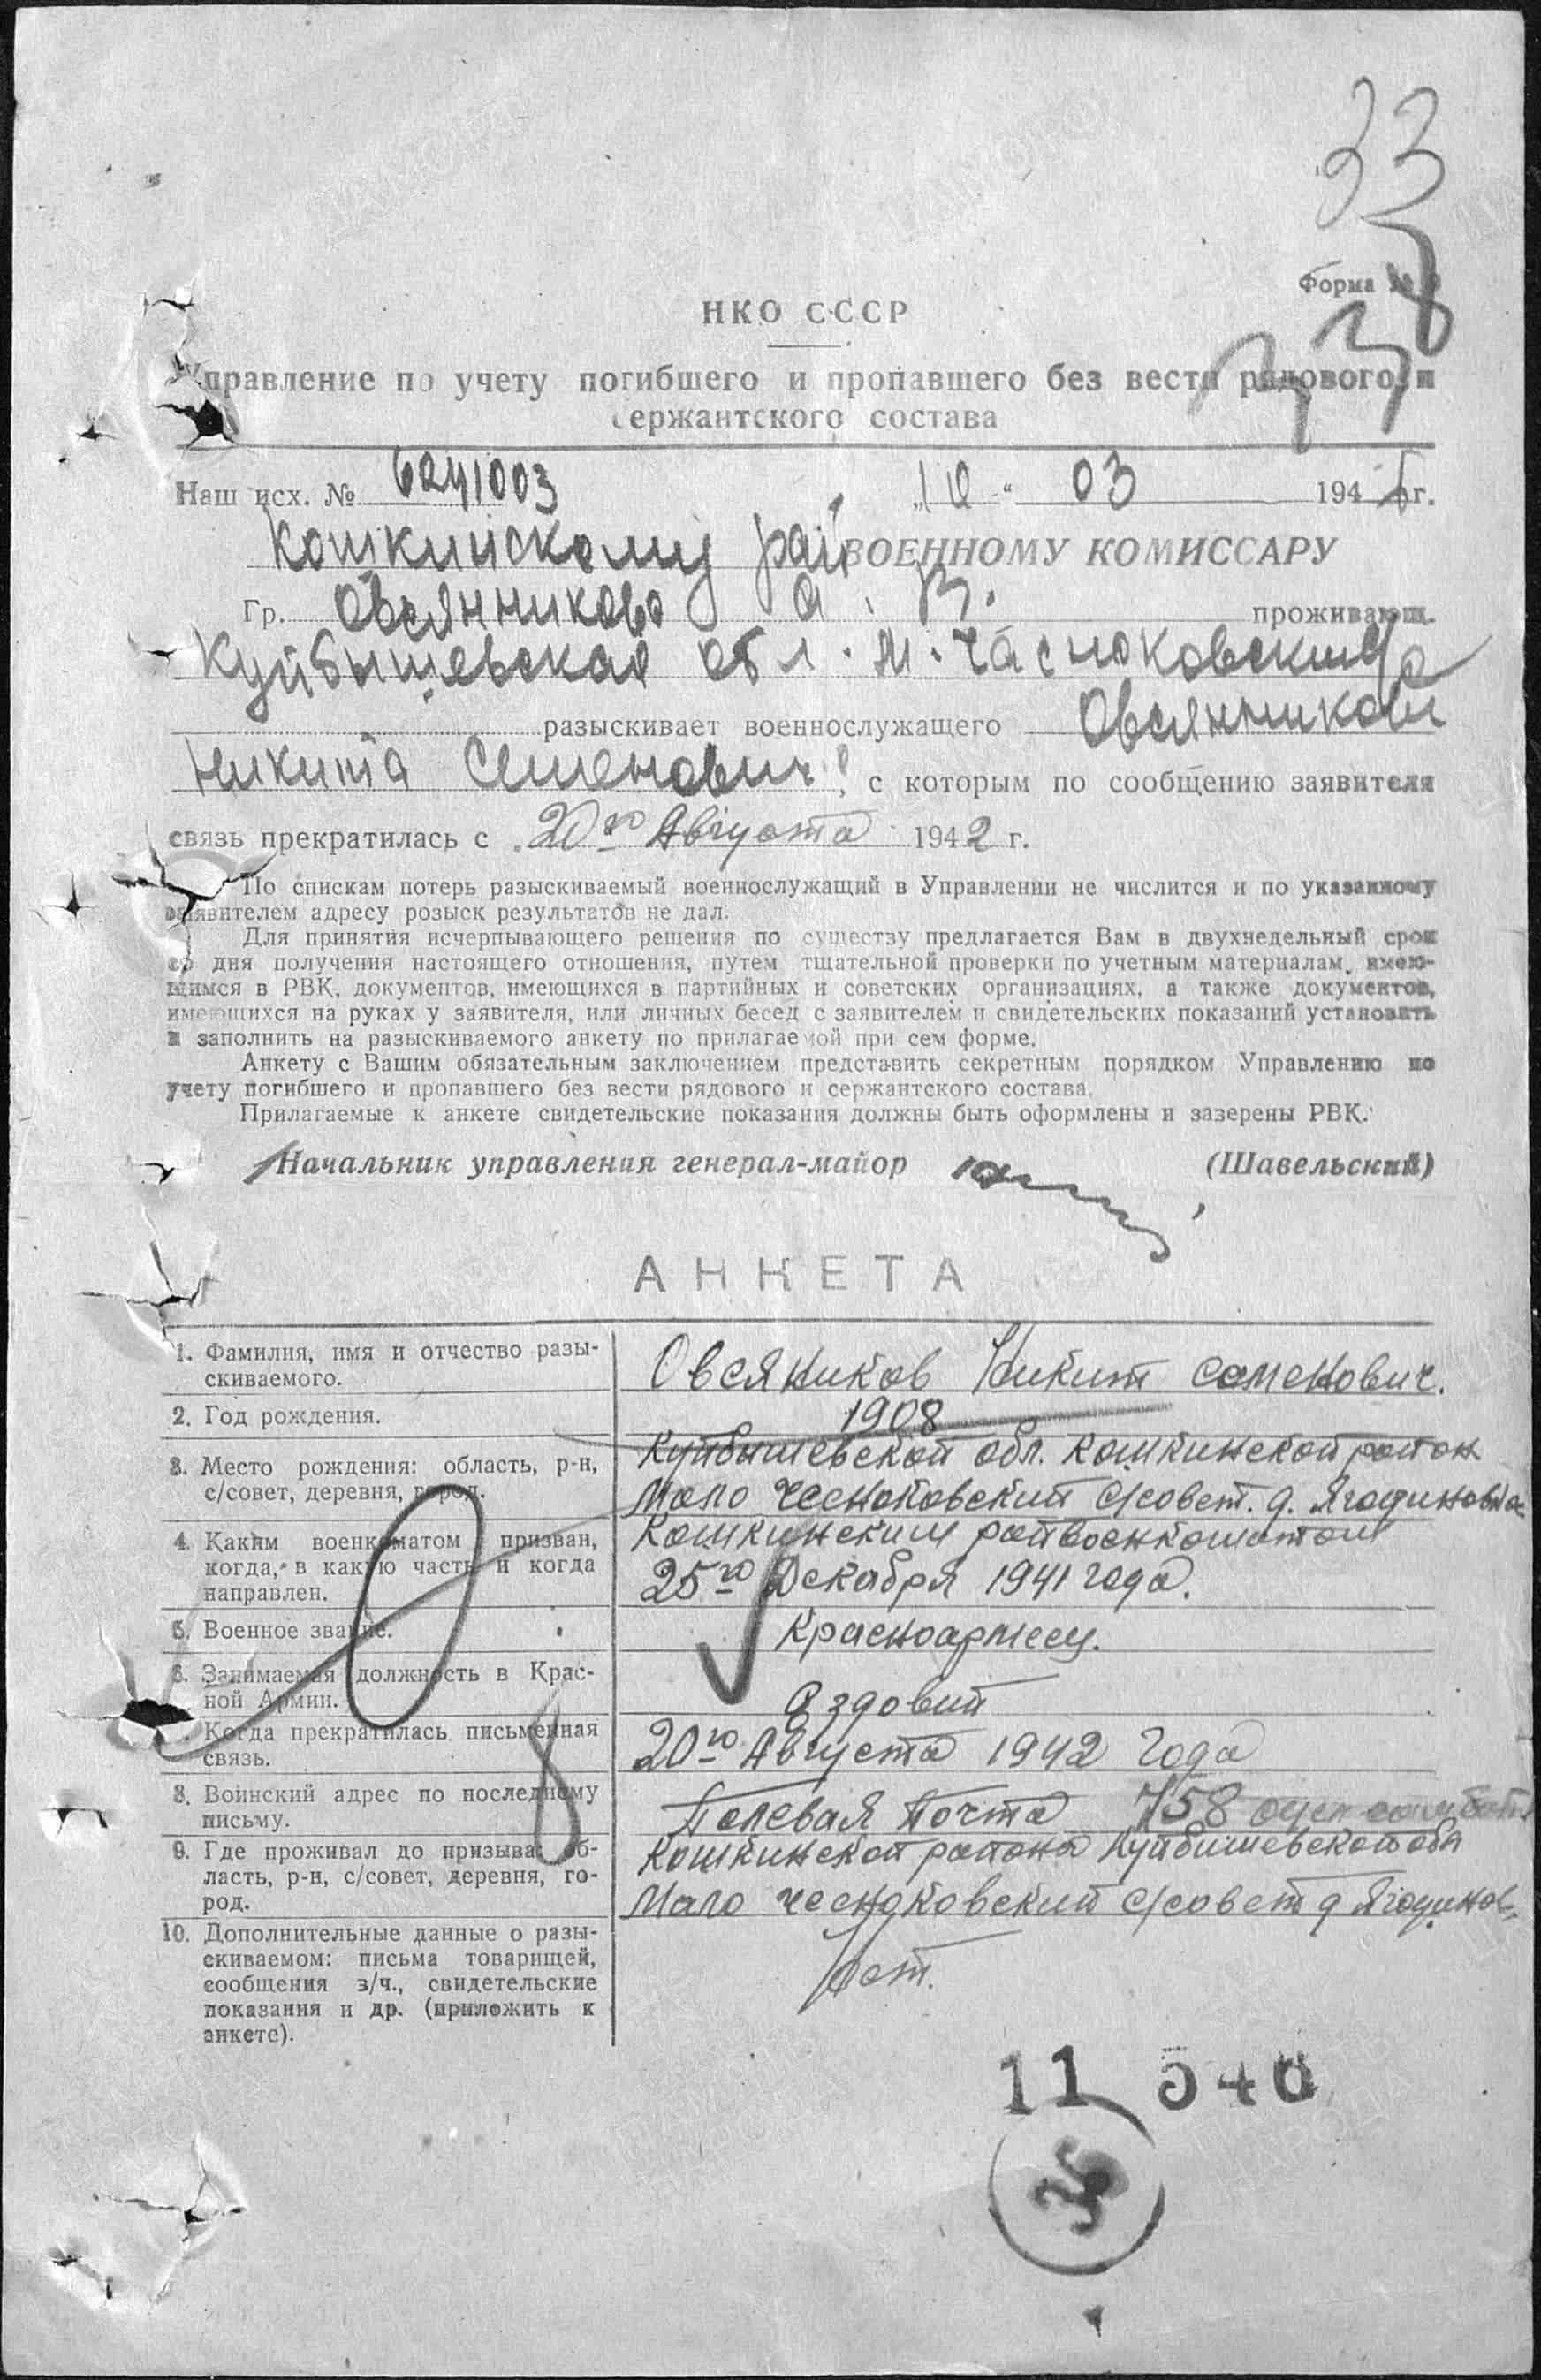 33
Форма №
НКО СССР
Управление по учету погибшего и пропавшего без вести рядового и
сержантского состава
Наш исх. № 6241003 „10“ 03 1945 г.
Кошкинскому рай ВОЕННОМУ КОМИССАРУ
Гр. Овсянникова А. В. проживающ.
Куйбышевская обл. М. Часноковский
разыскивает военнослужащего Овсянников
Никита Семенович, с которым по сообщению заявителя
связь прекратилась с 20го Августа 1942 г.
По спискам потерь разыскиваемый военнослужащий в Управлении не числится и по указанному
заявителем адресу розыск результатов не дал.
Для принятия исчерпывающего решения по существу предлагается Вам в двухнедельный срок
со дня получения настоящего отношения, путем тщательной проверки по учетным материалам, имею-
щимся в РВК, документов, имеющихся в партийных и советских организациях, а также документов,
имеющихся на руках у заявителя, или личных бесед с заявителем и свидетельских показаний установить
и заполнить на разыскиваемого анкету по прилагаемой при сем форме.
Анкету с Вашим обязательным заключением представить секретным порядком Управлению по
учету погибшего и пропавшего без вести рядового и сержантского состава.
Прилагаемые к анкете свидетельские показания должны быть оформлены и заверены РВК.
Начальник управления генерал-майор (Шавельский)
АНКЕТА
1. Фамилия, имя и отчество разы-
скиваемого.
Овсяников Никит Семенович.
2. Год рождения.
1908
3. Место рождения: область, р-н,
с/совет, деревня, город.
Куйбышевской обл. Кошкинской район
Мало Чесноковский с/совет. д. Ягодиновка
4. Каким военкоматом призван,
когда, в какую часть и когда
направлен.
Кошкинским райвоенкоматом
25го Декабря 1941 года.
5. Военное звание.
Красноармеец.
6. Занимаемая должность в Крас-
ной Армии.
Ездовый
Когда прекратилась письменная
связь.
20го Августа 1942 года
8. Воинский адрес по последнему
письму.
Полевая Почта 758
9. Где проживал до призыва: об-
ласть, р-н, с/совет, деревня, го-
род.
Кошкинской района Куйбышевской обл
Мало Чесноковский с/совет д Ягодинов
10. Дополнительные данные о разы-
скиваемом: письма товарищей,
сообщения з/ч., свидетельские
показания и др. (приложить к
анкете).
8
11 540
36